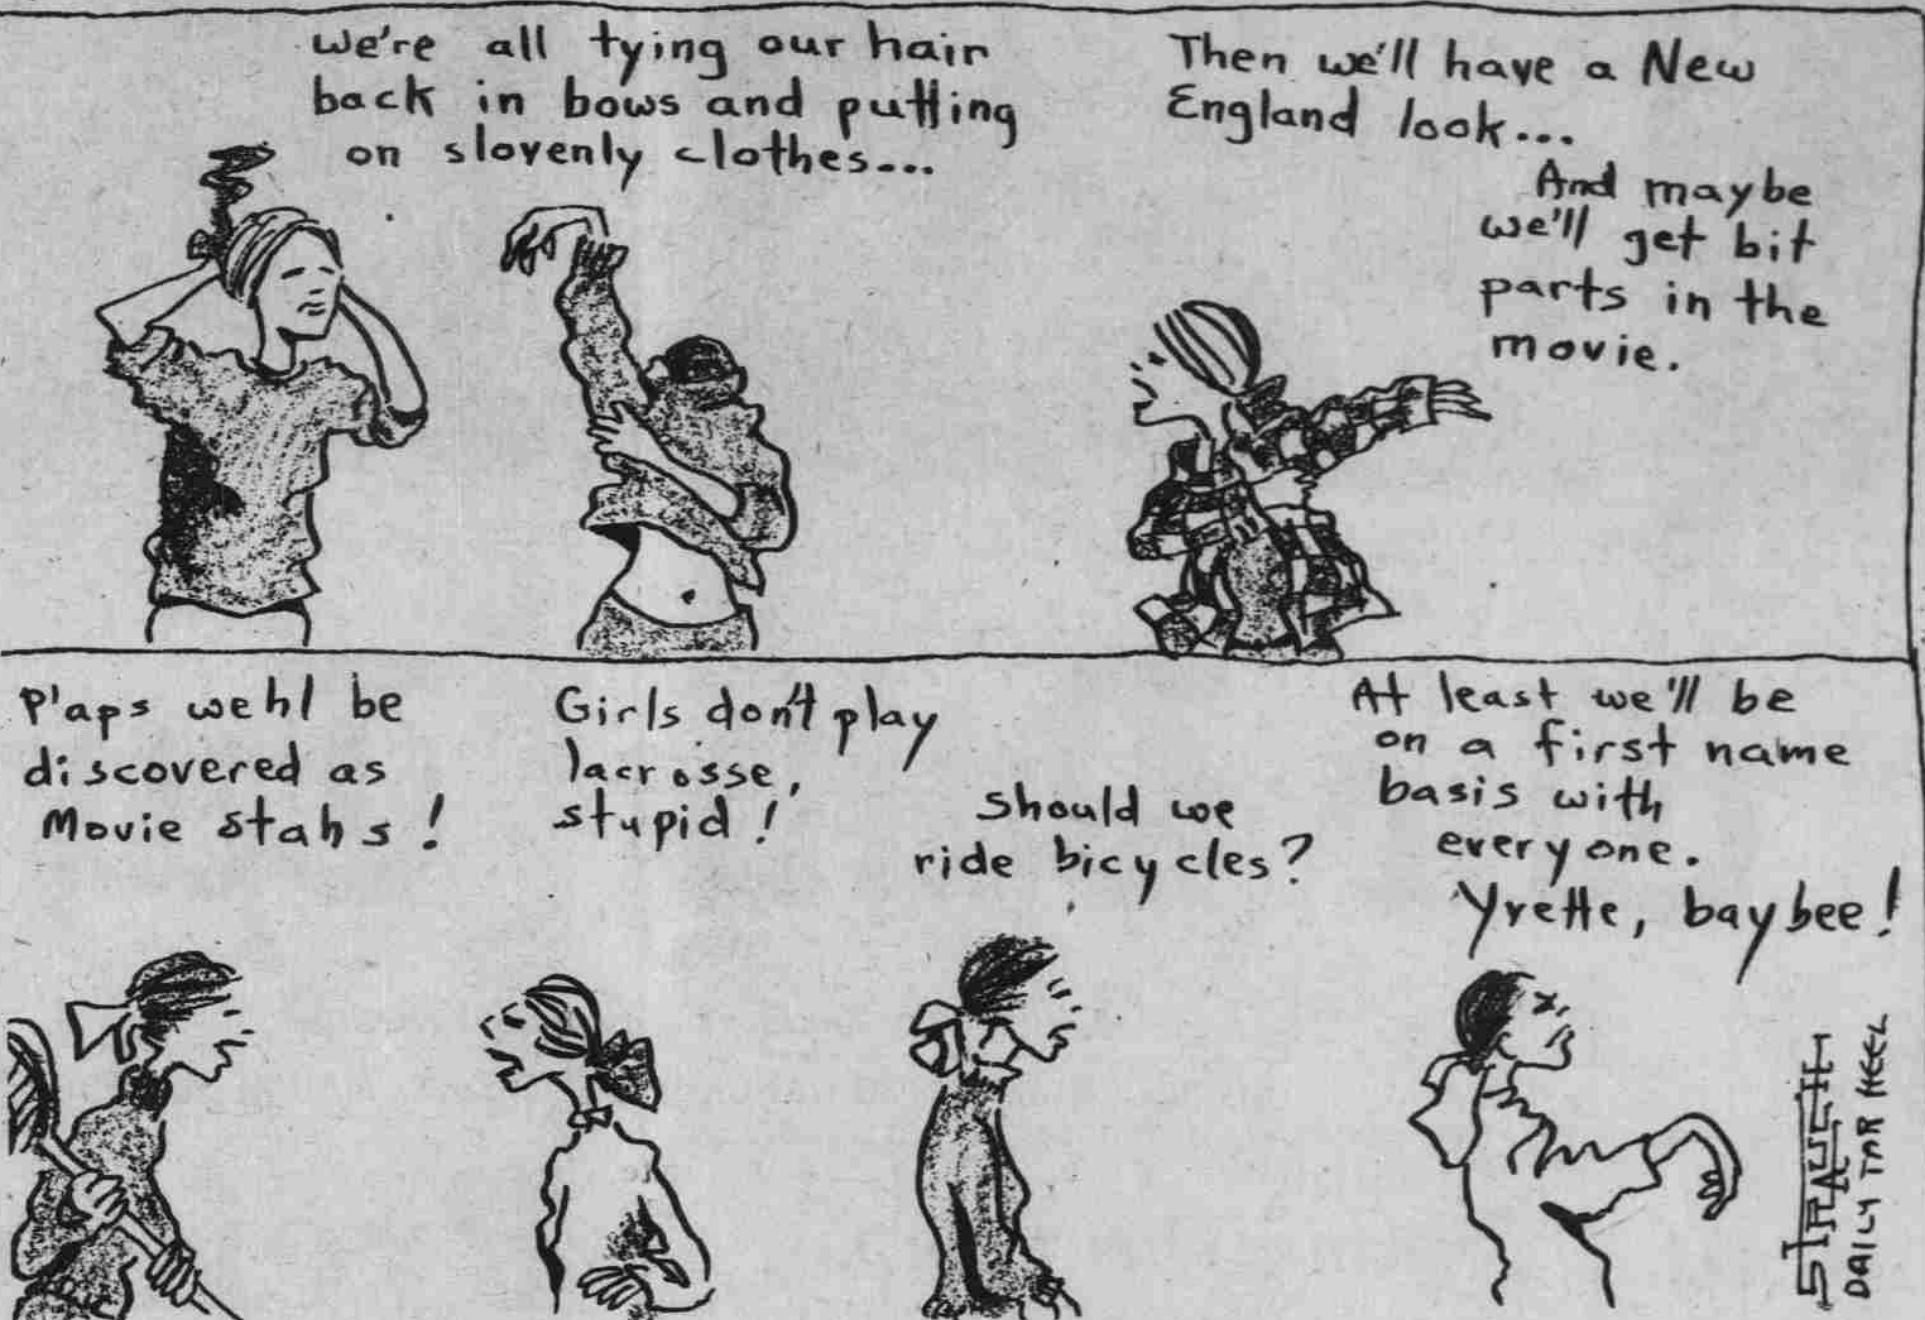 We're all tying our hair
back in bows and putting
on slovenly clothes...
Then we'll have a New
England look...
And maybe
we'll get bit
parts in the
movie.
P'aps wehl be
discovered as
Movie stahs!
Girls don't play
lacrosse,
stupid!
Should we
ride bicycles?
At least we'll be
on a first name
basis with
everyone.
Yvette, baybee!
STRAUCH
DAILY TAR HEEL